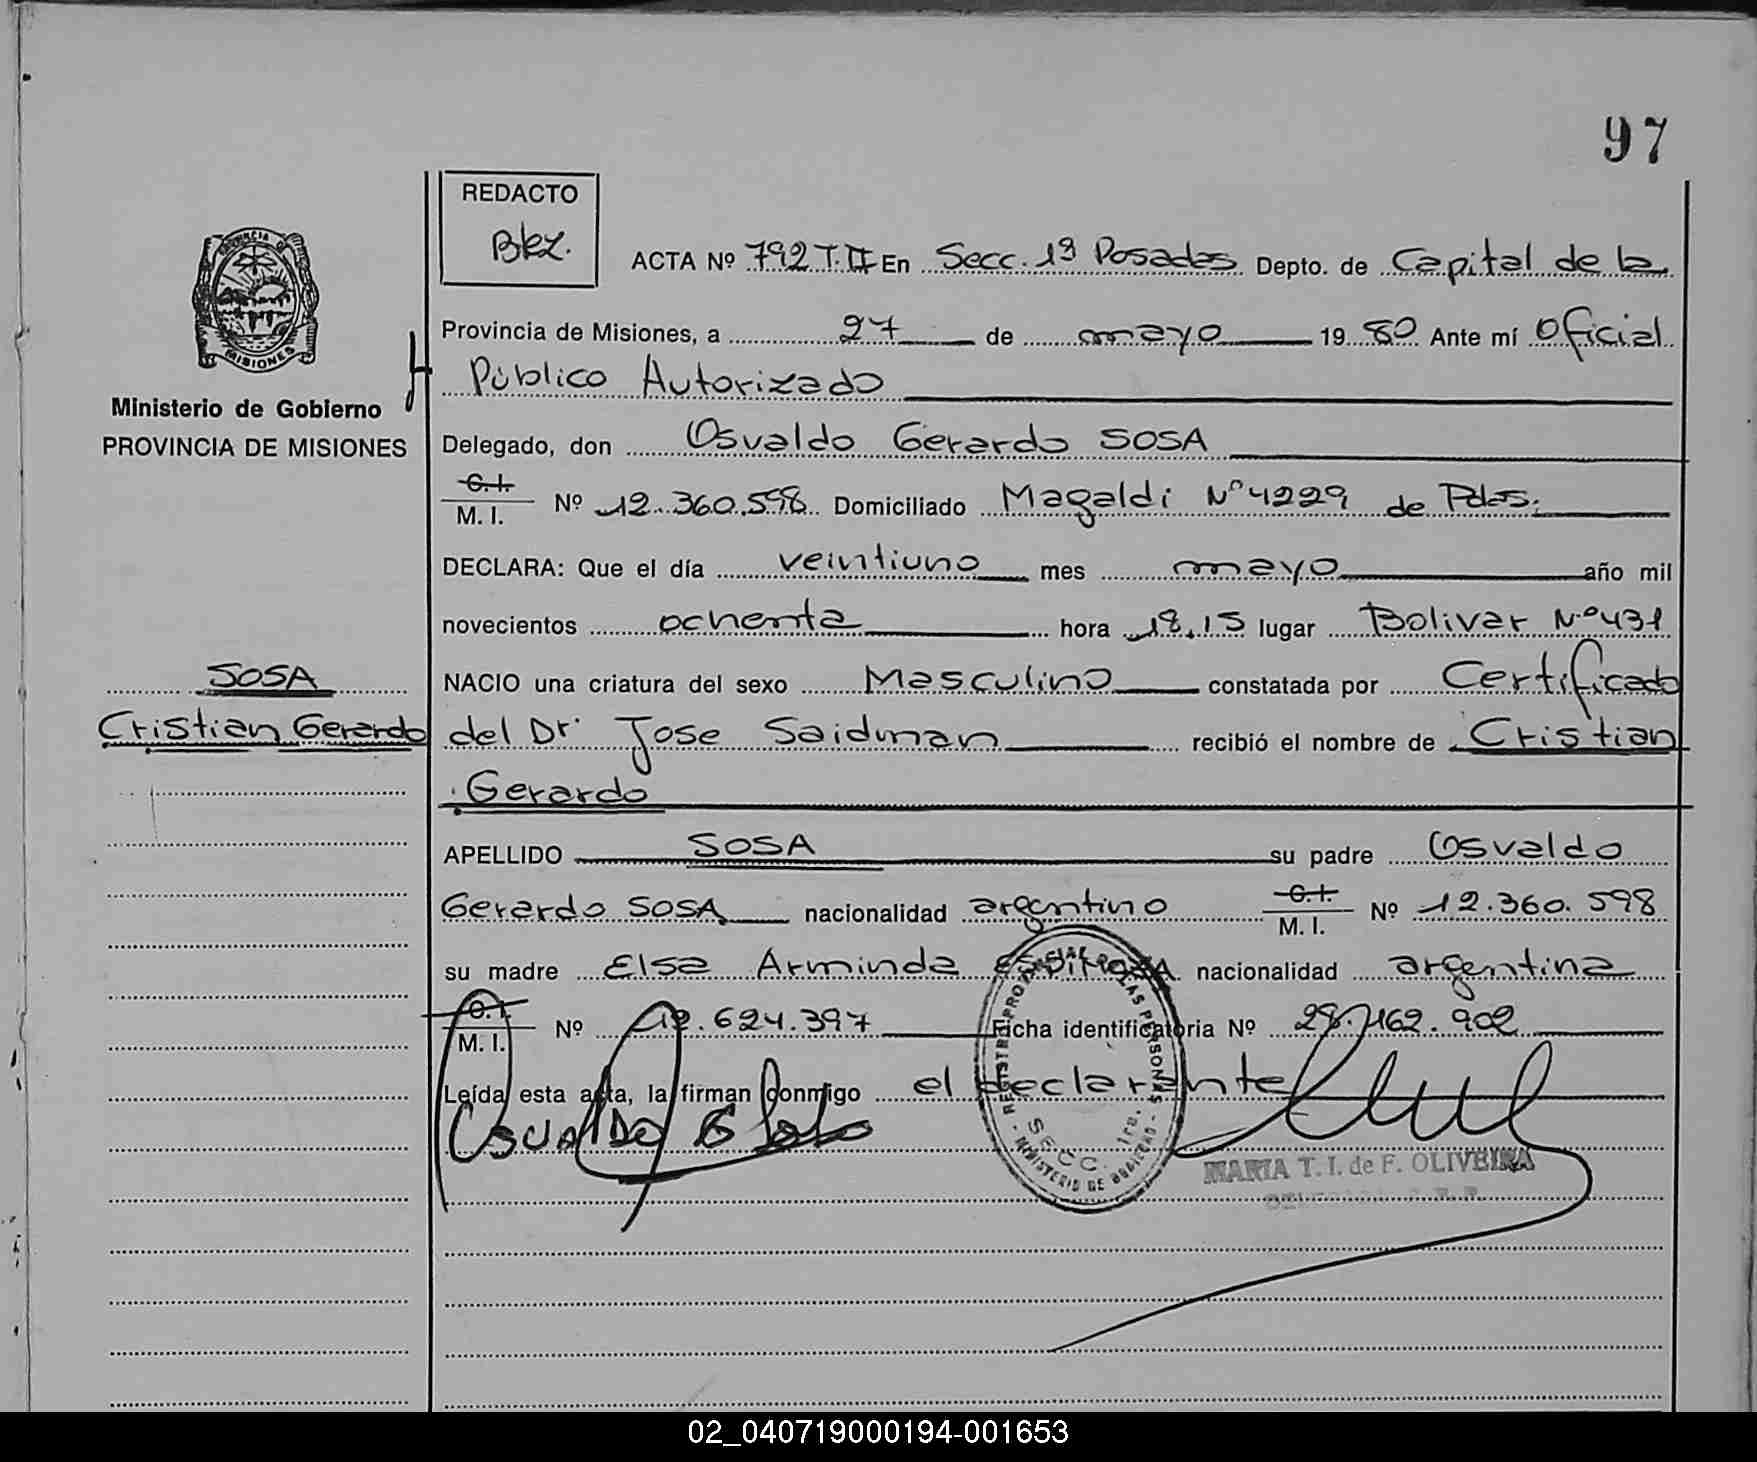 97
REDACTO
Bez.
ACTA Nº 792 T. II En Secc. 1ª Posadas Depto. de Capital de la
Provincia de Misiones, a 27 de mayo 19 80 Ante mí Oficial
Público Autorizado
Ministerio de Gobierno
PROVINCIA DE MISIONES
Delegado, don Osvaldo Gerardo SOSA
C. I.
M. I. Nº 12.360.598 Domiciliado Magaldi Nº 4229 de Pdas.
DECLARA: Que el día veintiuno mes mayo año mil
novecientos ochenta hora 18,15 lugar Bolivar Nº 431
SOSA
NACIO una criatura del sexo Masculino constatada por Certificado
Cristian Gerardo
del Dr. Jose Saidman recibió el nombre de Cristian
Gerardo
APELLIDO SOSA su padre Osvaldo
Gerardo SOSA nacionalidad argentino C. I. M. I. Nº 12.360.598
su madre Elsa Arminda nacionalidad argentina
C. I.
M. I. Nº .624.397 Ficha identificatoria Nº 28.162.902
Leída esta acta, la firman conmigo el declarante
Osvaldo G Sosa
REGISTRO PROVINCIAL DE LAS PERSONAS
SECC. 1ra.
MINISTERIO DE GOBIERNO
MARIA T. I. de F. OLIVEIRA
PROVINCIA DE
MISIONES
02_040719000194-001653